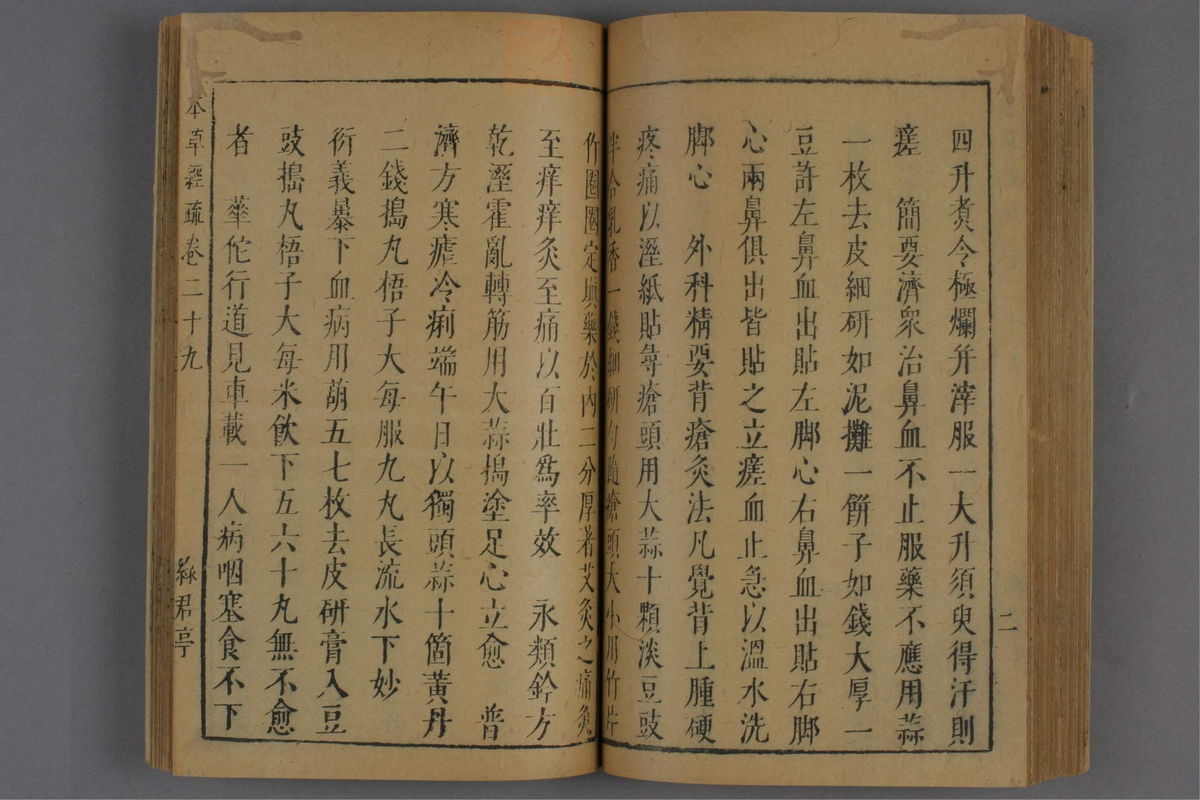 二
四升煮令極爛并滓服一大升須臾得汗則
瘥　簡要濟衆治鼻血不止服藥不應用蒜
一枚去皮細研如泥攤一餅子如錢大厚一
豆許左鼻血出貼左脚心右鼻血出貼右脚
心兩鼻俱出皆貼之立瘥血止急以溫水洗
脚心　外科精要背瘡灸法凡覺背上腫硬
疼痛以溼紙貼尋瘡頭用大蒜十顆淡豆豉
半合乳香一錢細研勻隨瘡頭大小用竹片
作圈圍定填藥於內二分厚者艾灸之痛灸
至痒痒灸至痛以百壯爲率效　永類鈐方
乾溼霍亂轉筋用大蒜搗塗足心立愈　普
濟方寒瘧冷痢端午日以獨頭蒜十箇黃丹
二錢搗丸梧子大每服九丸長流水下妙
衍義暴下血病用葫五七枚去皮研膏入豆
豉搗丸梧子大每米飲下五六十丸無不愈
者　華佗行道見車載一人病咽塞食不下
本草經疏卷二十九
綠君亭